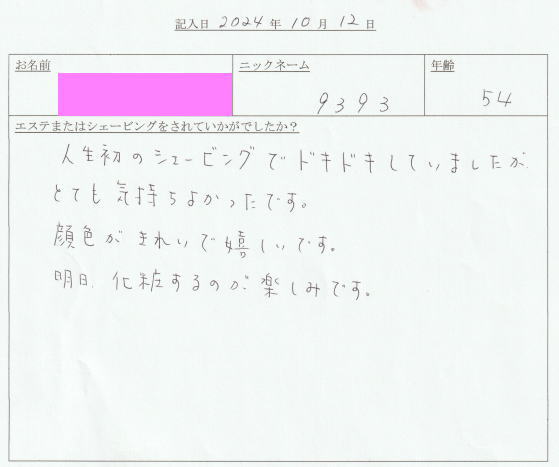 記入日 2024 年 10 月 12 日
お名前 ニックネーム 年齢
9393 54
エステまたはシェービングをされていかがでしたか？
人生初のシェービングでドキドキしていましたが、
とても気持ちよかったです。
顔色がきれいで嬉しいです。
明日、化粧するのが楽しみです。